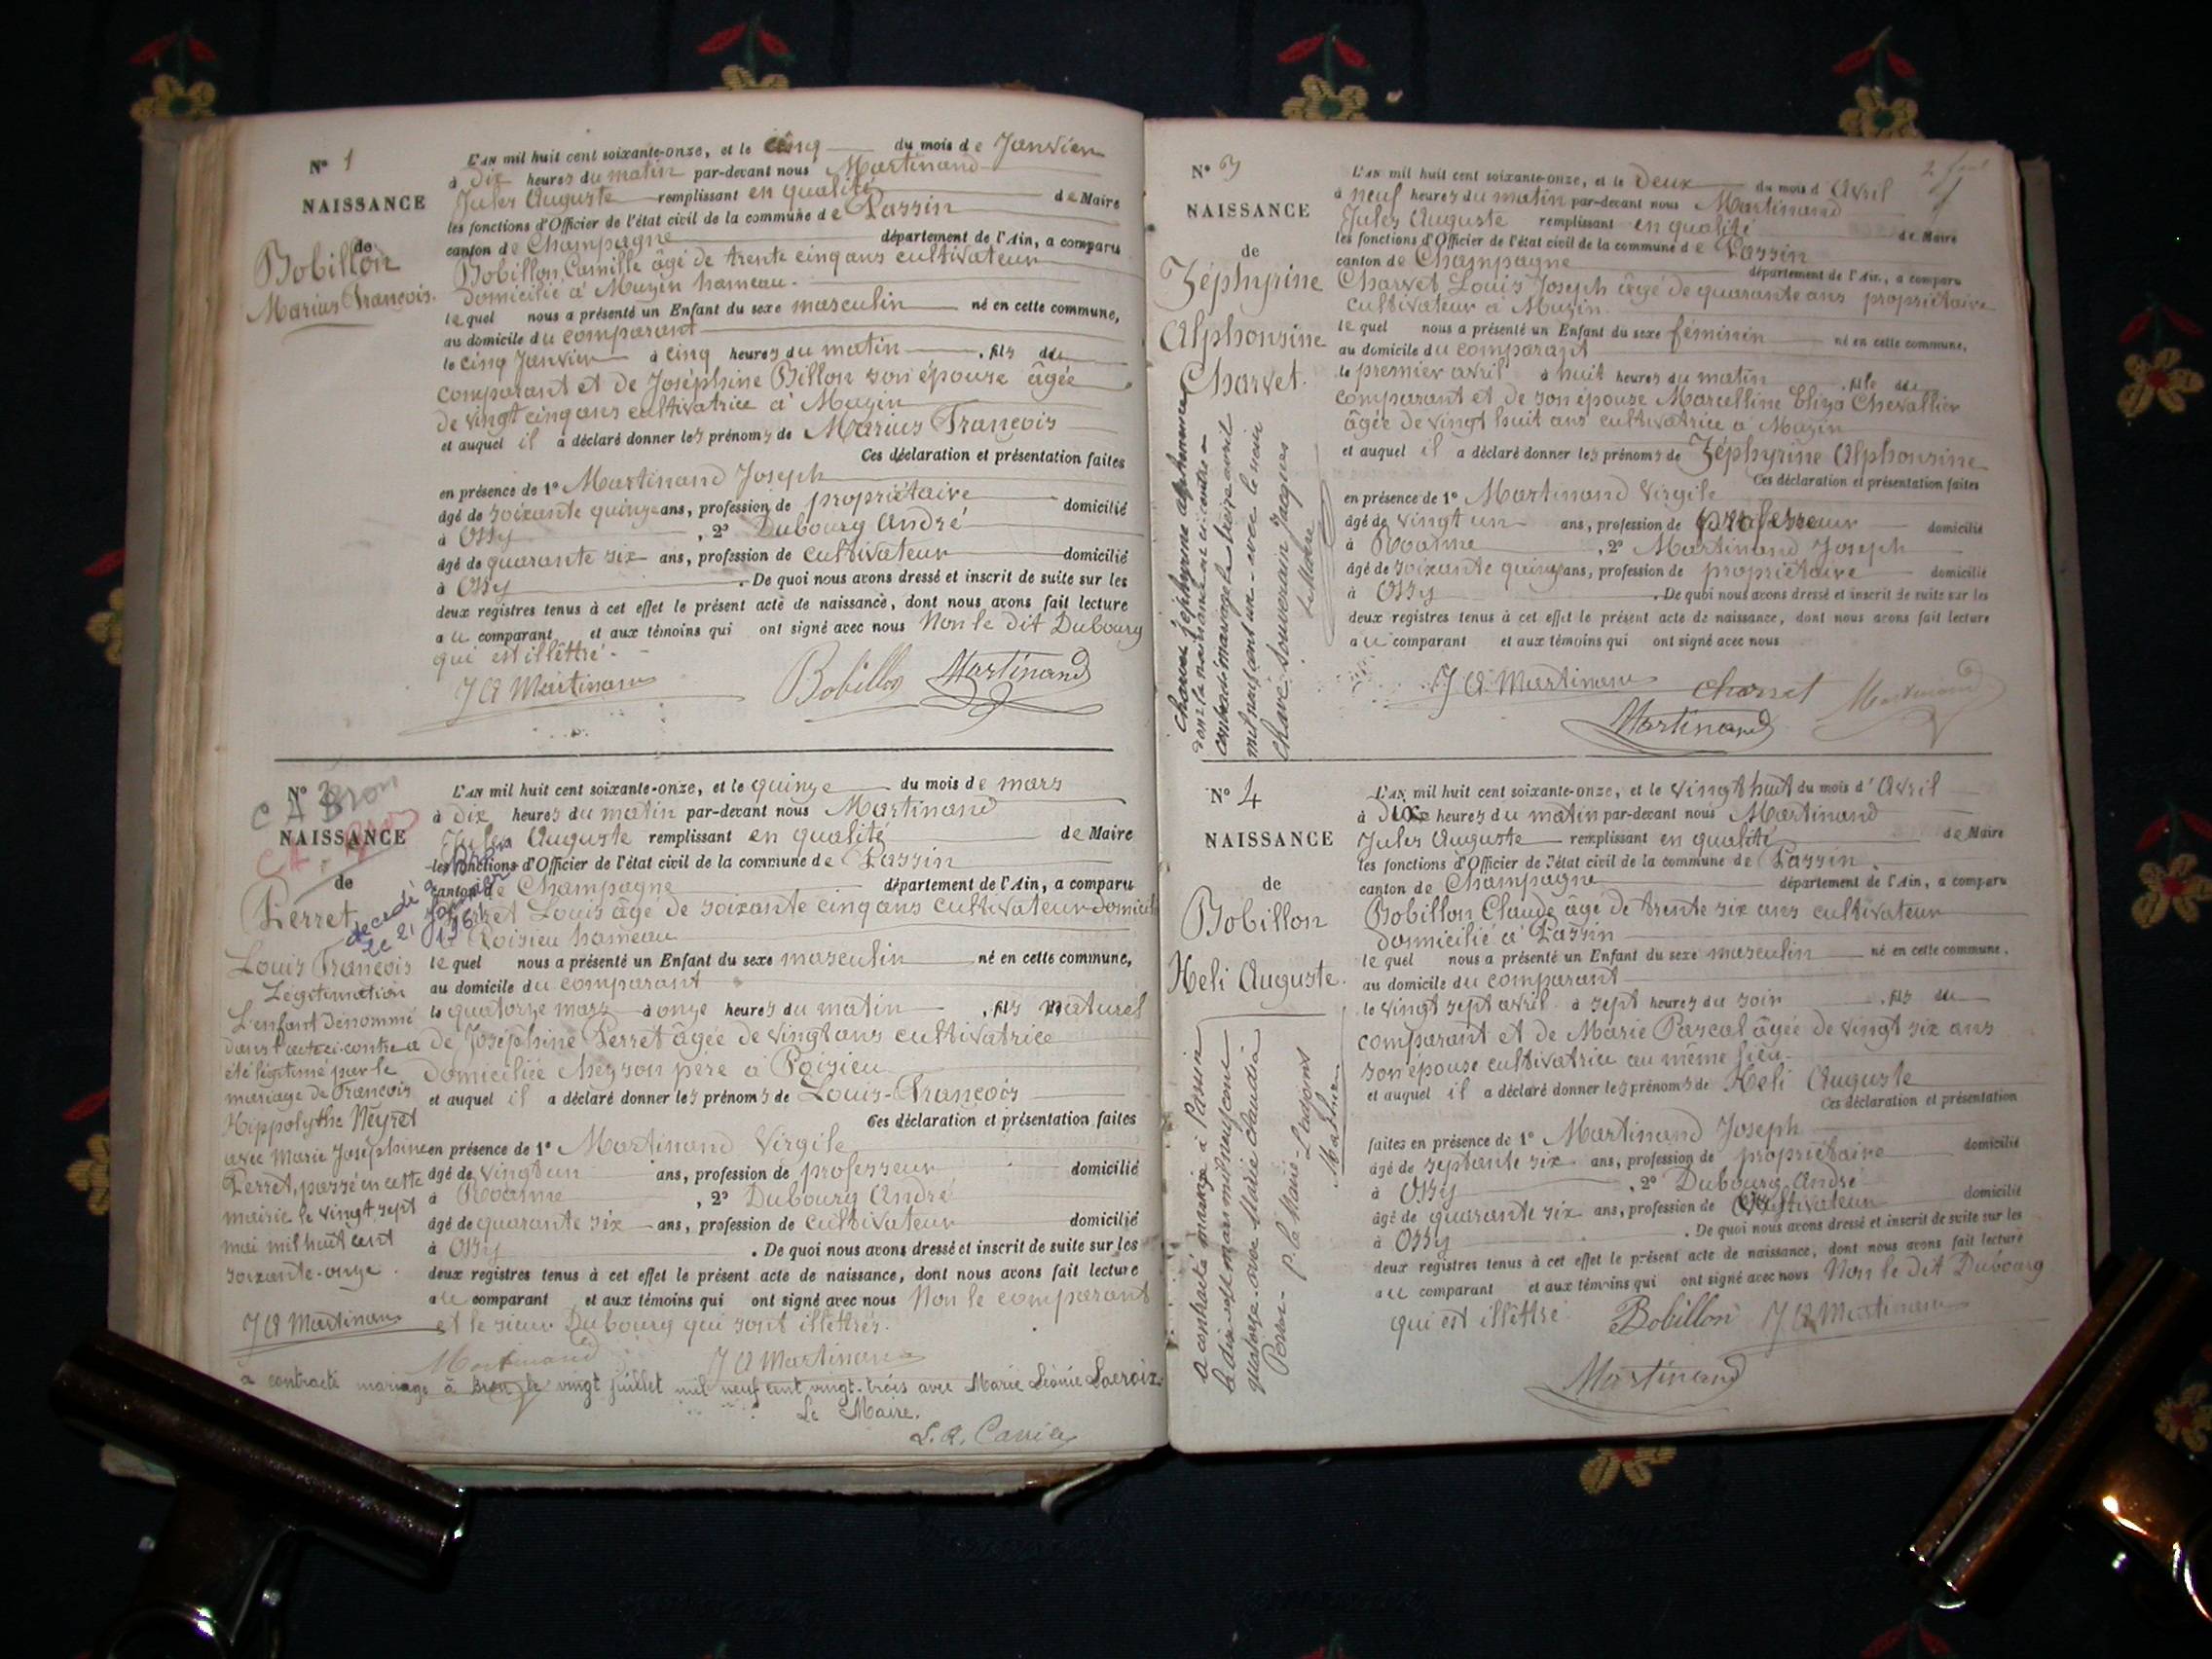 N° 1
NAISSANCE
de
Bobillon
Marius François.
L'AN mil huit cent soixante-onze, et le cinq du mois de Janvier
à dix heures du matin par-devant nous Martinand
Jules Auguste remplissant en qualité de Maire
les fonctions d'Officier de l'état civil de la commune de Passin
canton de Champagne département de l'Ain, a comparu
Bobillon Camille âgé de trente cinq ans cultivateur
domicilié à Muzin hameau.
lequel nous a présenté un Enfant du sexe masculin né en cette commune,
au domicile du comparant
le cinq Janvier à cinq heures du matin, fils du
comparant et de Joséphine Billon son épouse âgée
de vingt cinq ans cultivatrice à Muzin
et auquel il a déclaré donner les prénoms de Marius François
Ces déclaration et présentation faites
en présence de 1° Martinand Joseph
âgé de soixante quinze ans, profession de propriétaire domicilié
à Ossy, 2° Dubourg André
âgé de quarante six ans, profession de cultivateur domicilié
à Ossy. De quoi nous avons dressé et inscrit de suite sur les
deux registres tenus à cet effet le présent acte de naissance, dont nous avons fait lecture
au comparant et aux témoins qui ont signé avec nous Non le dit Dubourg
qui est illéttré.
J A Martinand Bobillon Martinand
N° 2
C A Bron
NAISSANCE
de
Perret
décédé à Bron
le 21 Janvier
Louis François
Légitimation
L'enfant dénommé
dans l'acte ci-contre a
été légitimé par le
mariage de François
Hippolythe Neyret
avec Marie Joséphine
Perret, passé en cette
mairie le vingt sept
mai mil huit cent
soixante-onze.
J A Martinand
L'AN mil huit cent soixante-onze, et le quinze du mois de mars
à dix heures du matin par-devant nous Martinand
Jules Auguste remplissant en qualité de Maire
les fonctions d'Officier de l'état civil de la commune de Passin
canton de Champagne département de l'Ain, a comparu
Perret Louis âgé de soixante cinq ans cultivateur domicilié
à Poisieu hameau
lequel nous a présenté un Enfant du sexe masculin né en cette commune,
au domicile du comparant
le quatorze mars à onze heures du matin, fils naturel
de Joséphine Perret âgée de vingt ans cultivatrice
domiciliée chez son père à Poisieu
et auquel il a déclaré donner les prénoms de Louis-François
Ces déclaration et présentation faites
en présence de 1° Martinand Virgile
âgé de vingt un ans, profession de professeur domicilié
à Roanne, 2° Dubourg André
âgé de quarante six ans, profession de cultivateur domicilié
à Ossy. De quoi nous avons dressé et inscrit de suite sur les
deux registres tenus à cet effet le présent acte de naissance, dont nous avons fait lecture
au comparant et aux témoins qui ont signé avec nous Non le comparant
et le sieur Dubourg qui sont illéttrés.
Martinand J A Martinand
a contracté mariage à Bron le vingt juillet mil neuf cent vingt-trois avec Marie Léonie Lacroix.
Le Maire.
N° 3
NAISSANCE
de
Zéphyrine
Alphonsine
Charvet.
Charvet Zéphyrine Alphonsine
dont la naissance est ci contre a
contracté mariage le treize avril
mil neuf cent un avec le nommé
Souverain Jacques
Le Maire
L'AN mil huit cent soixante-onze, et le deux du mois d'Avril
à neuf heures du matin par-devant nous Martinand
Jules Auguste remplissant en qualité de Maire
les fonctions d'Officier de l'état civil de la commune de Passin
canton de Champagne département de l'Ain, a comparu
Charvet Louis Joseph âgé de quarante ans propriétaire
cultivateur à Muzin.
lequel nous a présenté un Enfant du sexe féminin né en cette commune,
au domicile du comparant
le premier avril à huit heures du matin, fille du
comparant et de son épouse Marcelline Eliza Chevallier
âgée de vingt huit ans cultivatrice à Muzin
et auquel il a déclaré donner les prénoms de Zéphyrine Alphonsine
Ces déclaration et présentation faites
en présence de 1° Martinand Virgile
âgé de vingt un ans, profession de professeur domicilié
à Roanne, 2° Martinand Joseph
âgé de soixante quinze ans, profession de propriétaire domicilié
à Ossy. De quoi nous avons dressé et inscrit de suite sur les
deux registres tenus à cet effet le présent acte de naissance, dont nous avons fait lecture
au comparant et aux témoins qui ont signé avec nous
J A Martinand Charvet Martinand
Martinand
N° 4
NAISSANCE
de
Bobillon
Heli Auguste.
a contracté mariage à Passin
le dix-sept mars mil neuf cent
quatorze avec Marie Claudia
P. le Maire - L'adjoint
L'AN mil huit cent soixante-onze, et le vingt huit du mois d'Avril
à dix heures du matin par-devant nous Martinand
Jules Auguste remplissant en qualité de Maire
les fonctions d'Officier de l'état civil de la commune de Passin
canton de Champagne département de l'Ain, a comparu
Bobillon Claude âgé de trente six ans cultivateur
domicilié à Passin
lequel nous a présenté un Enfant du sexe masculin né en cette commune,
au domicile du comparant
le vingt sept avril à sept heures du soir, fils du
comparant et de Marie Pascal âgée de vingt six ans
son épouse cultivatrice au même lieu.
et auquel il a déclaré donner les prénoms de Heli Auguste
Ces déclaration et présentation
faites en présence de 1° Martinand Joseph
âgé de septante six ans, profession de propriétaire domicilié
à Ossy, 2° Dubourg André
âgé de quarante six ans, profession de Cultivateur domicilié
à Ossy. De quoi nous avons dressé et inscrit de suite sur les
deux registres tenus à cet effet le présent acte de naissance, dont nous avons fait lecture
au comparant et aux témoins qui ont signé avec nous Non le dit Dubourg
qui est illéttré. Bobillon J A Martinand
Martinand